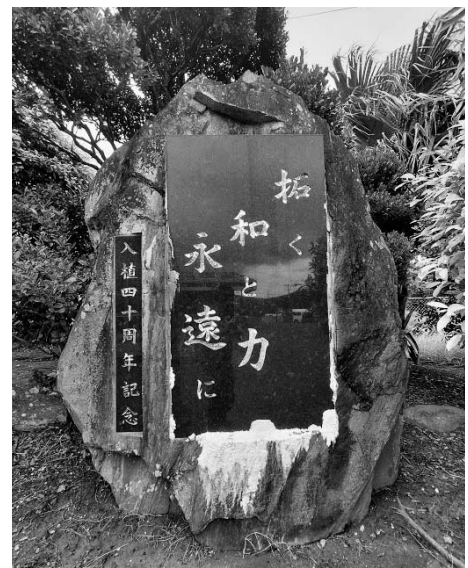 拓く
和と力
永遠に
入植四十周年記念